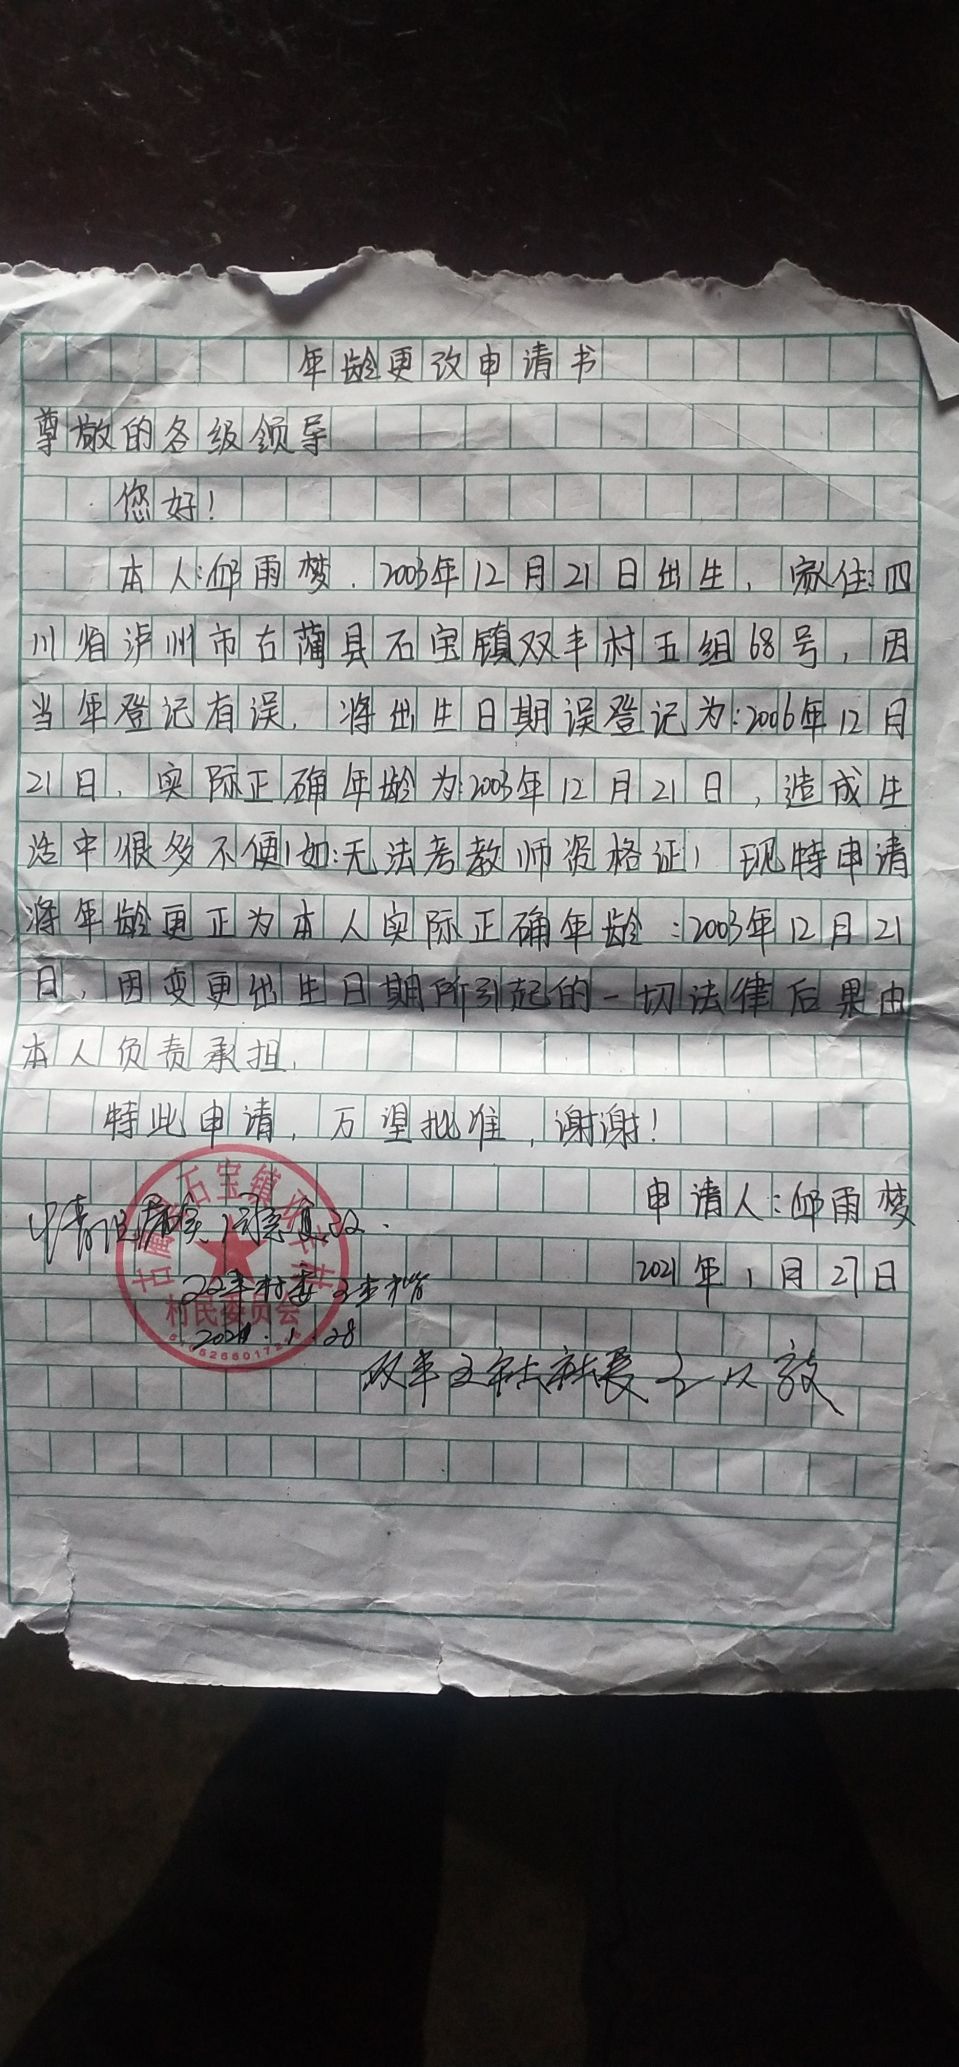 年龄更改申请书
尊敬的各级领导
您好!
本人:邱雨梦. 2003年12月21日出生, 家住:四
川省泸州市古蔺县石宝镇双丰村五组68号, 因
当年登记有误, 将出生日期误登记为:2006年12月
21日, 实际正确年龄为:2003年12月21日, 造成生
活中很多不便(如:无法考教师资格证) 现特申请
将年龄更正为本人实际正确年龄:2003年12月21
日, 因变更出生日期所引起的一切法律后果由
本人负责承担.
特此申请, 万望批准, 谢谢!
申请人:邱雨梦
2021年1月27日
石宝镇双丰村
村民委员会
双丰村委
2021.1.28
双丰五社社长